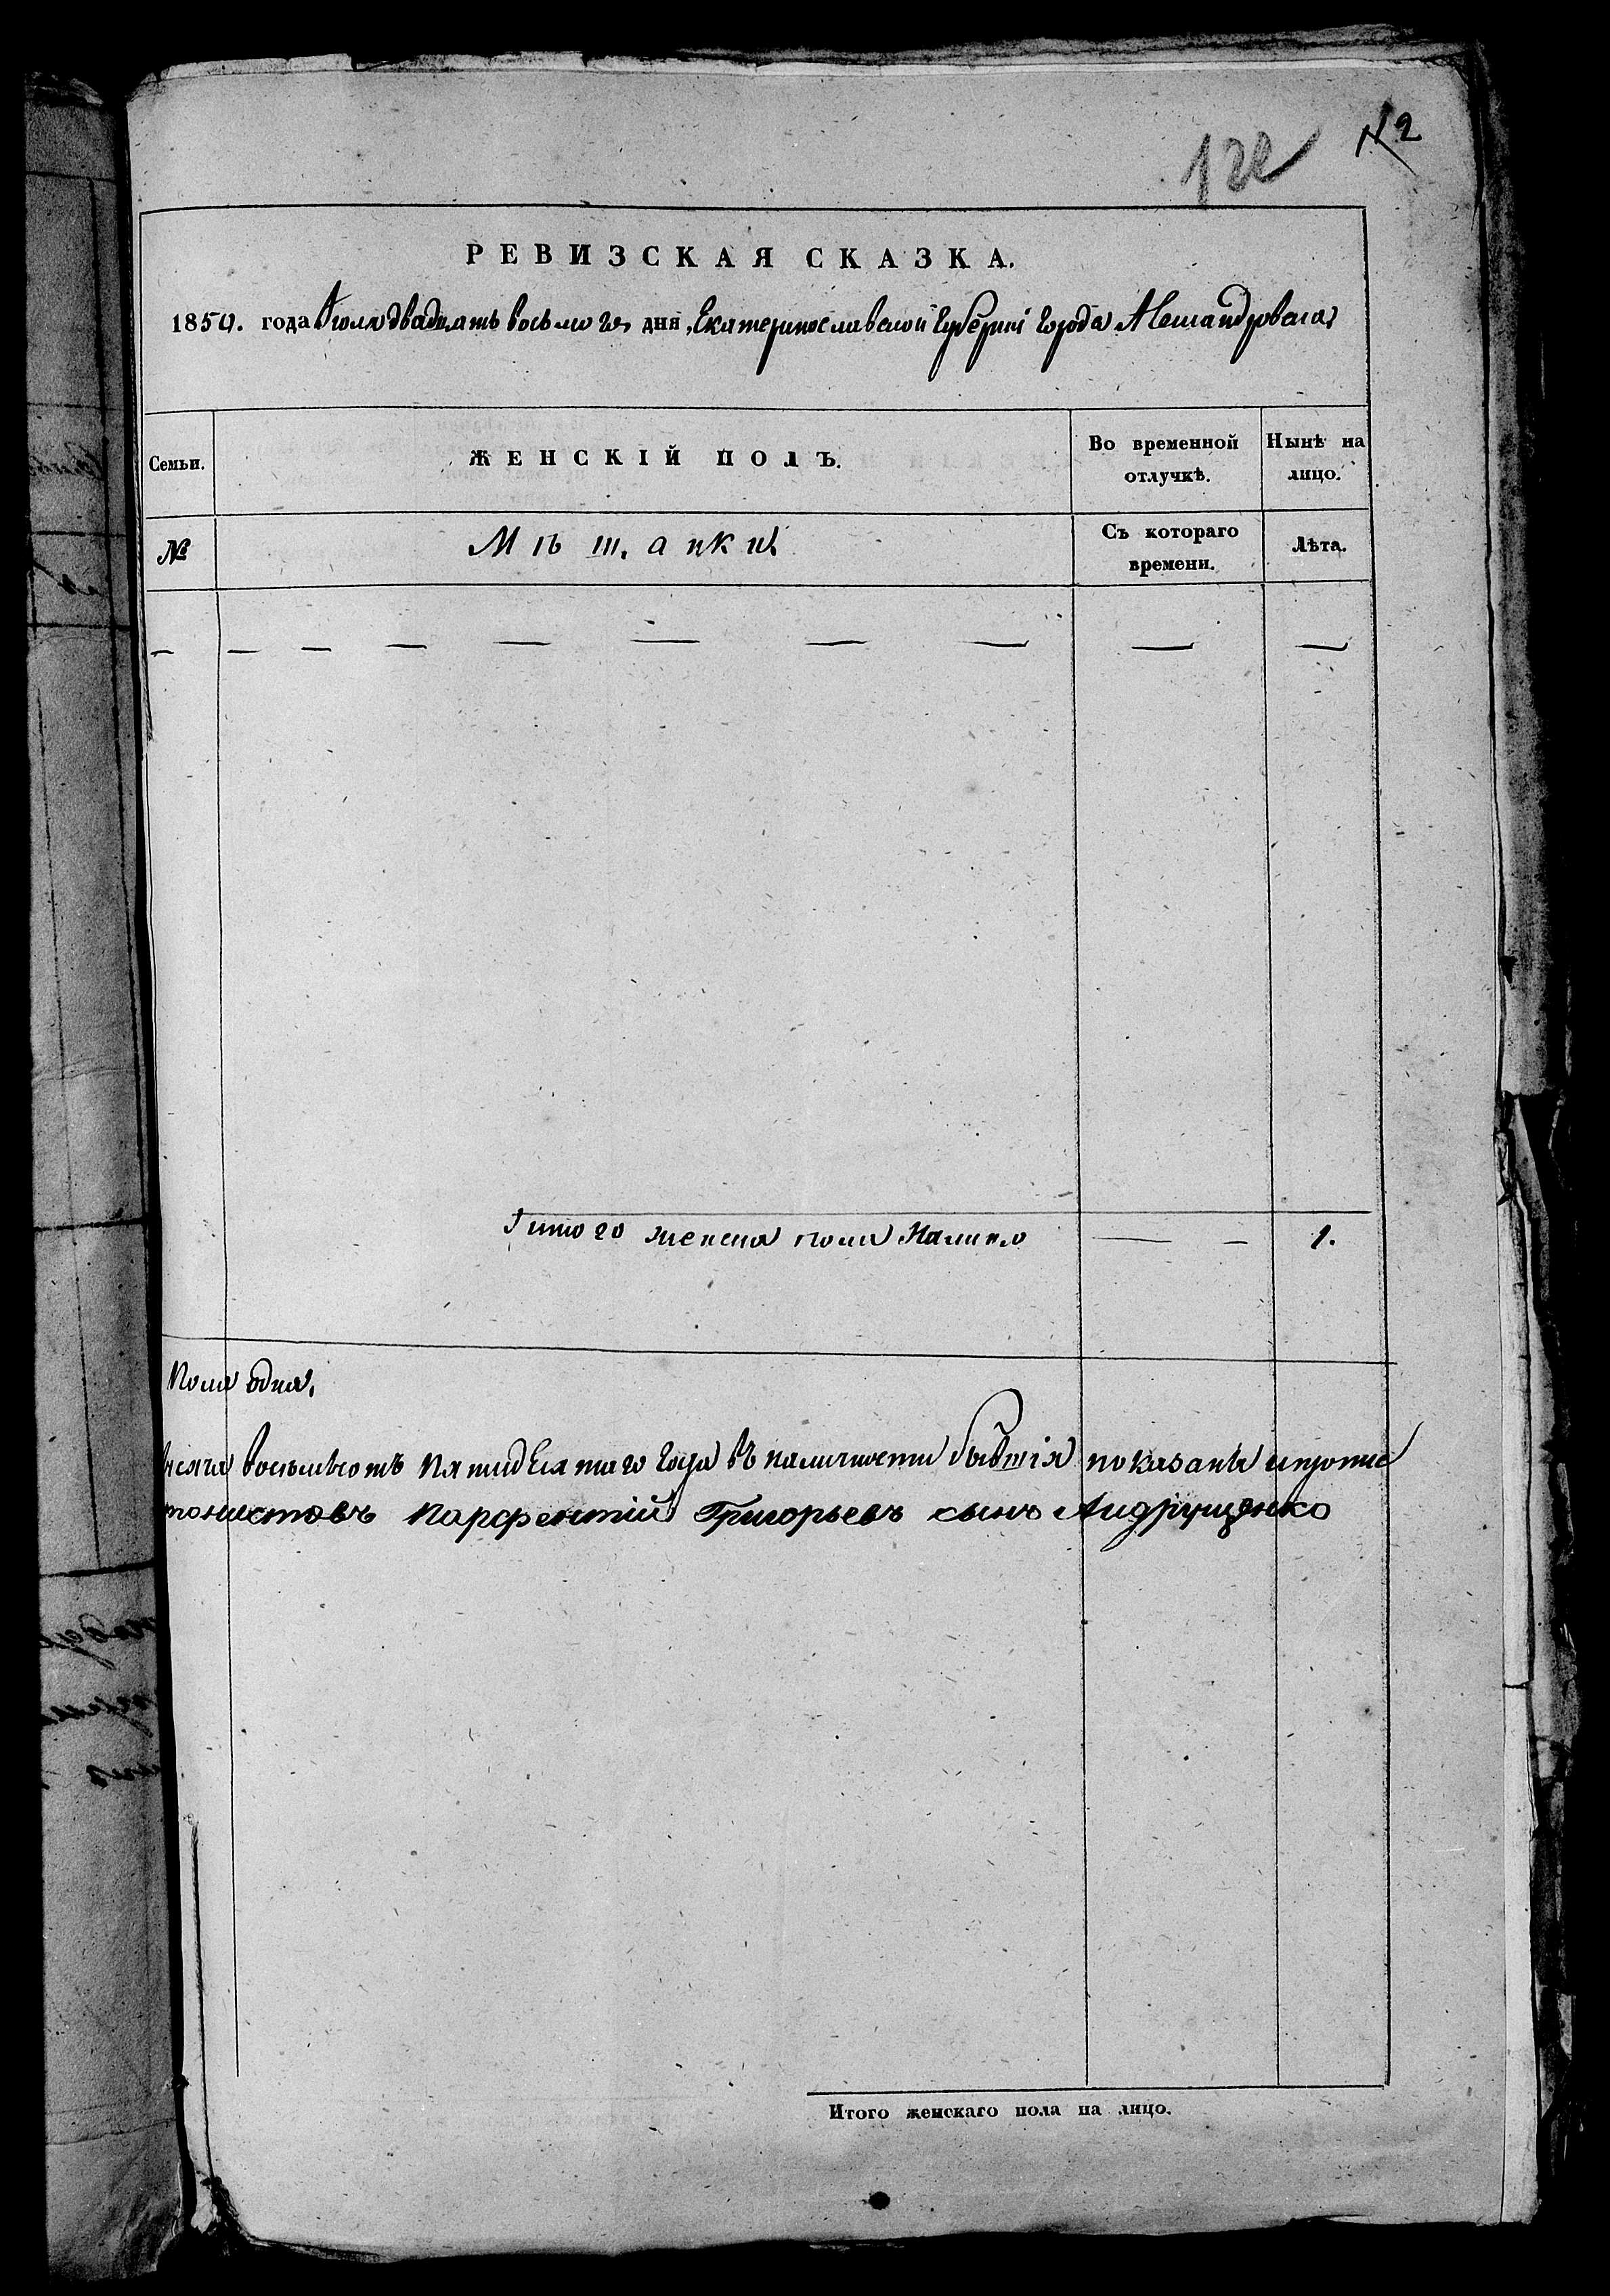 122
РЕВИЗСКАЯ СКАЗКА.
1850. года Іюля двадцать восьмого дня, Екатеринославской Губерніи Города Александровска
Семьи.
ЖЕНСКІЙ ПОЛЪ.
Во временной отлучкѣ.
Нынѣ на лицо.
№
Мѣщанки
Съ котораго времени.
Лѣта.
— — — — — — — — — —
Итого женска пола Налицо — — 1.
Пола одна.
восемьсотъ пятидесятаго Года въ наличности бывшія показаны и противъ
Парфентій Григорьевъ сынъ Андрущенко
Итого женскаго пола на лицо.